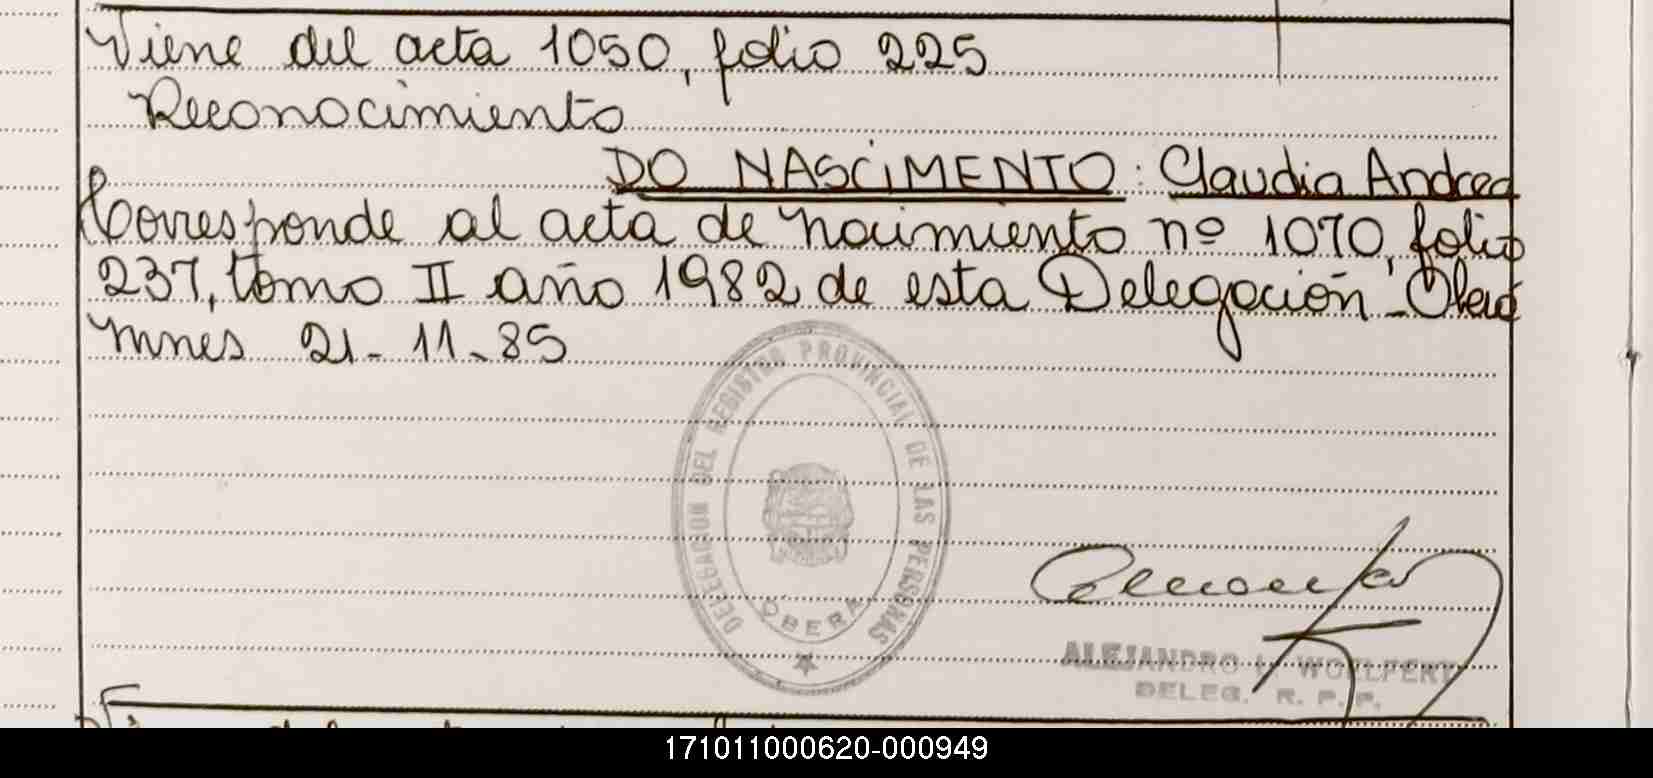 Viene del acta 1050, folio 225
Reconocimiento
DO NASCIMENTO: Claudia Andrea
Corresponde al acta de nacimiento nº 1070, folio
237, tomo II año 1982 de esta Delegación - Oberá
Mnes 21-11-85
DELEGACION DEL REGISTRO PROVINCIAL DE LAS PERSONAS
OBERA
ALEJANDRO L. WOELFERT
DELEG. R. P. P.
171011000620-000949